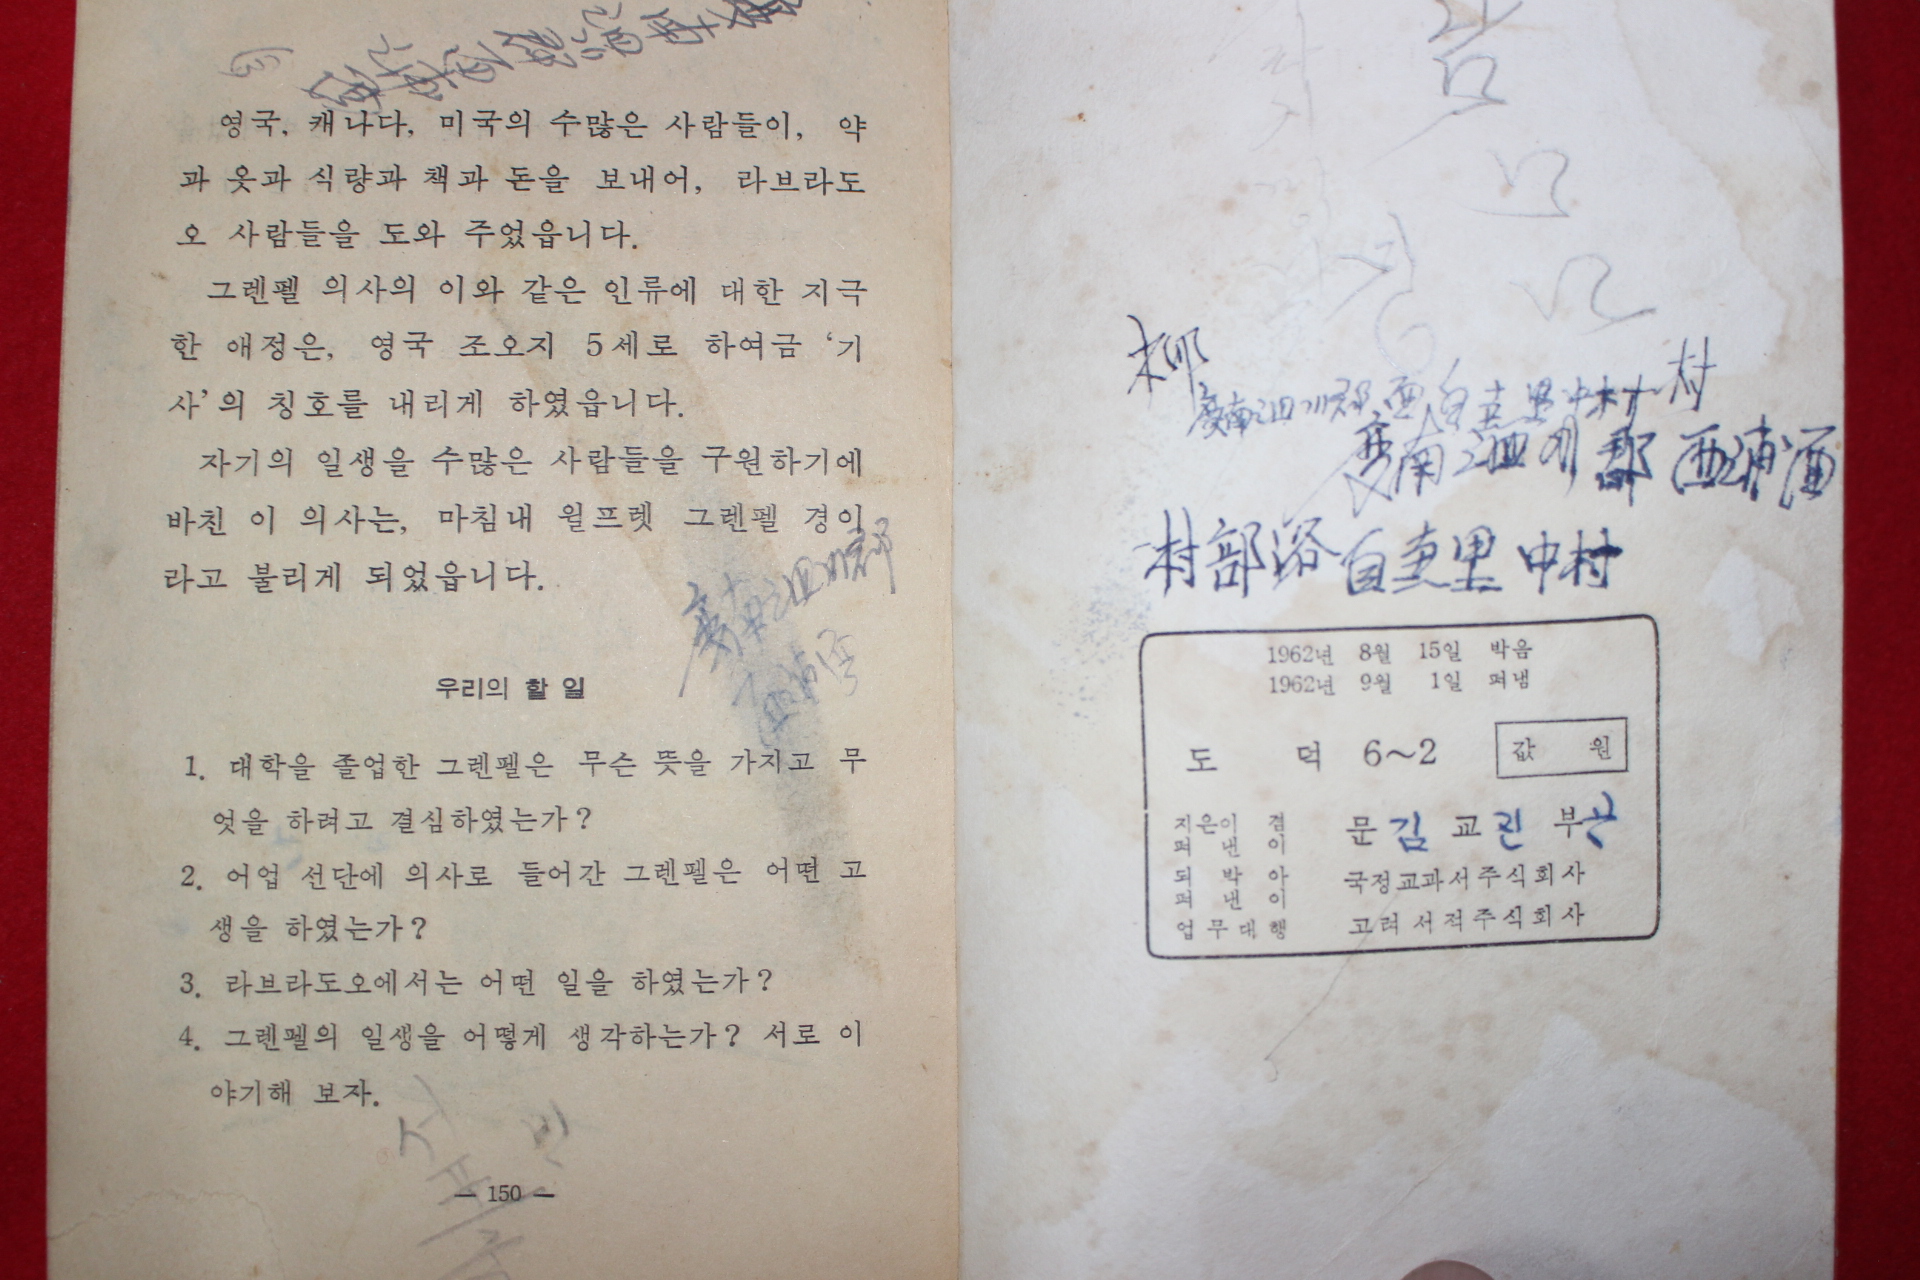 영국, 캐나다, 미국의 수많은 사람들이, 약
과 옷과 식량과 책과 돈을 보내어, 라브라도
오 사람들을 도와 주었읍니다.
그렌펠 의사의 이와 같은 인류에 대한 지극
한 애정은, 영국 조오지 5세로 하여금 ‘기
사’의 칭호를 내리게 하였읍니다.
자기의 일생을 수많은 사람들을 구원하기에
바친 이 의사는, 마침내 윌프렛 그렌펠 경이
라고 불리게 되었읍니다.
우리의 할 일
1. 대학을 졸업한 그렌펠은 무슨 뜻을 가지고 무
엇을 하려고 결심하였는가?
2. 어업 선단에 의사로 들어간 그렌펠은 어떤 고
생을 하였는가?
3. 라브라도오에서는 어떤 일을 하였는가?
4. 그렌펠의 일생을 어떻게 생각하는가? 서로 이
야기해 보자.
— 150 —
柳
村
南泗川郡 西
村部洛 自惠里 中村
1962년 8월 15일 박음
1962년 9월 1일 펴냄
도 덕 6~2 값 원
지은이 겸
펴 낸 이 문 김 교 진 부
되 박 아
펴 낸 이 국정교과서주식회사
업무대행 고려서적주식회사